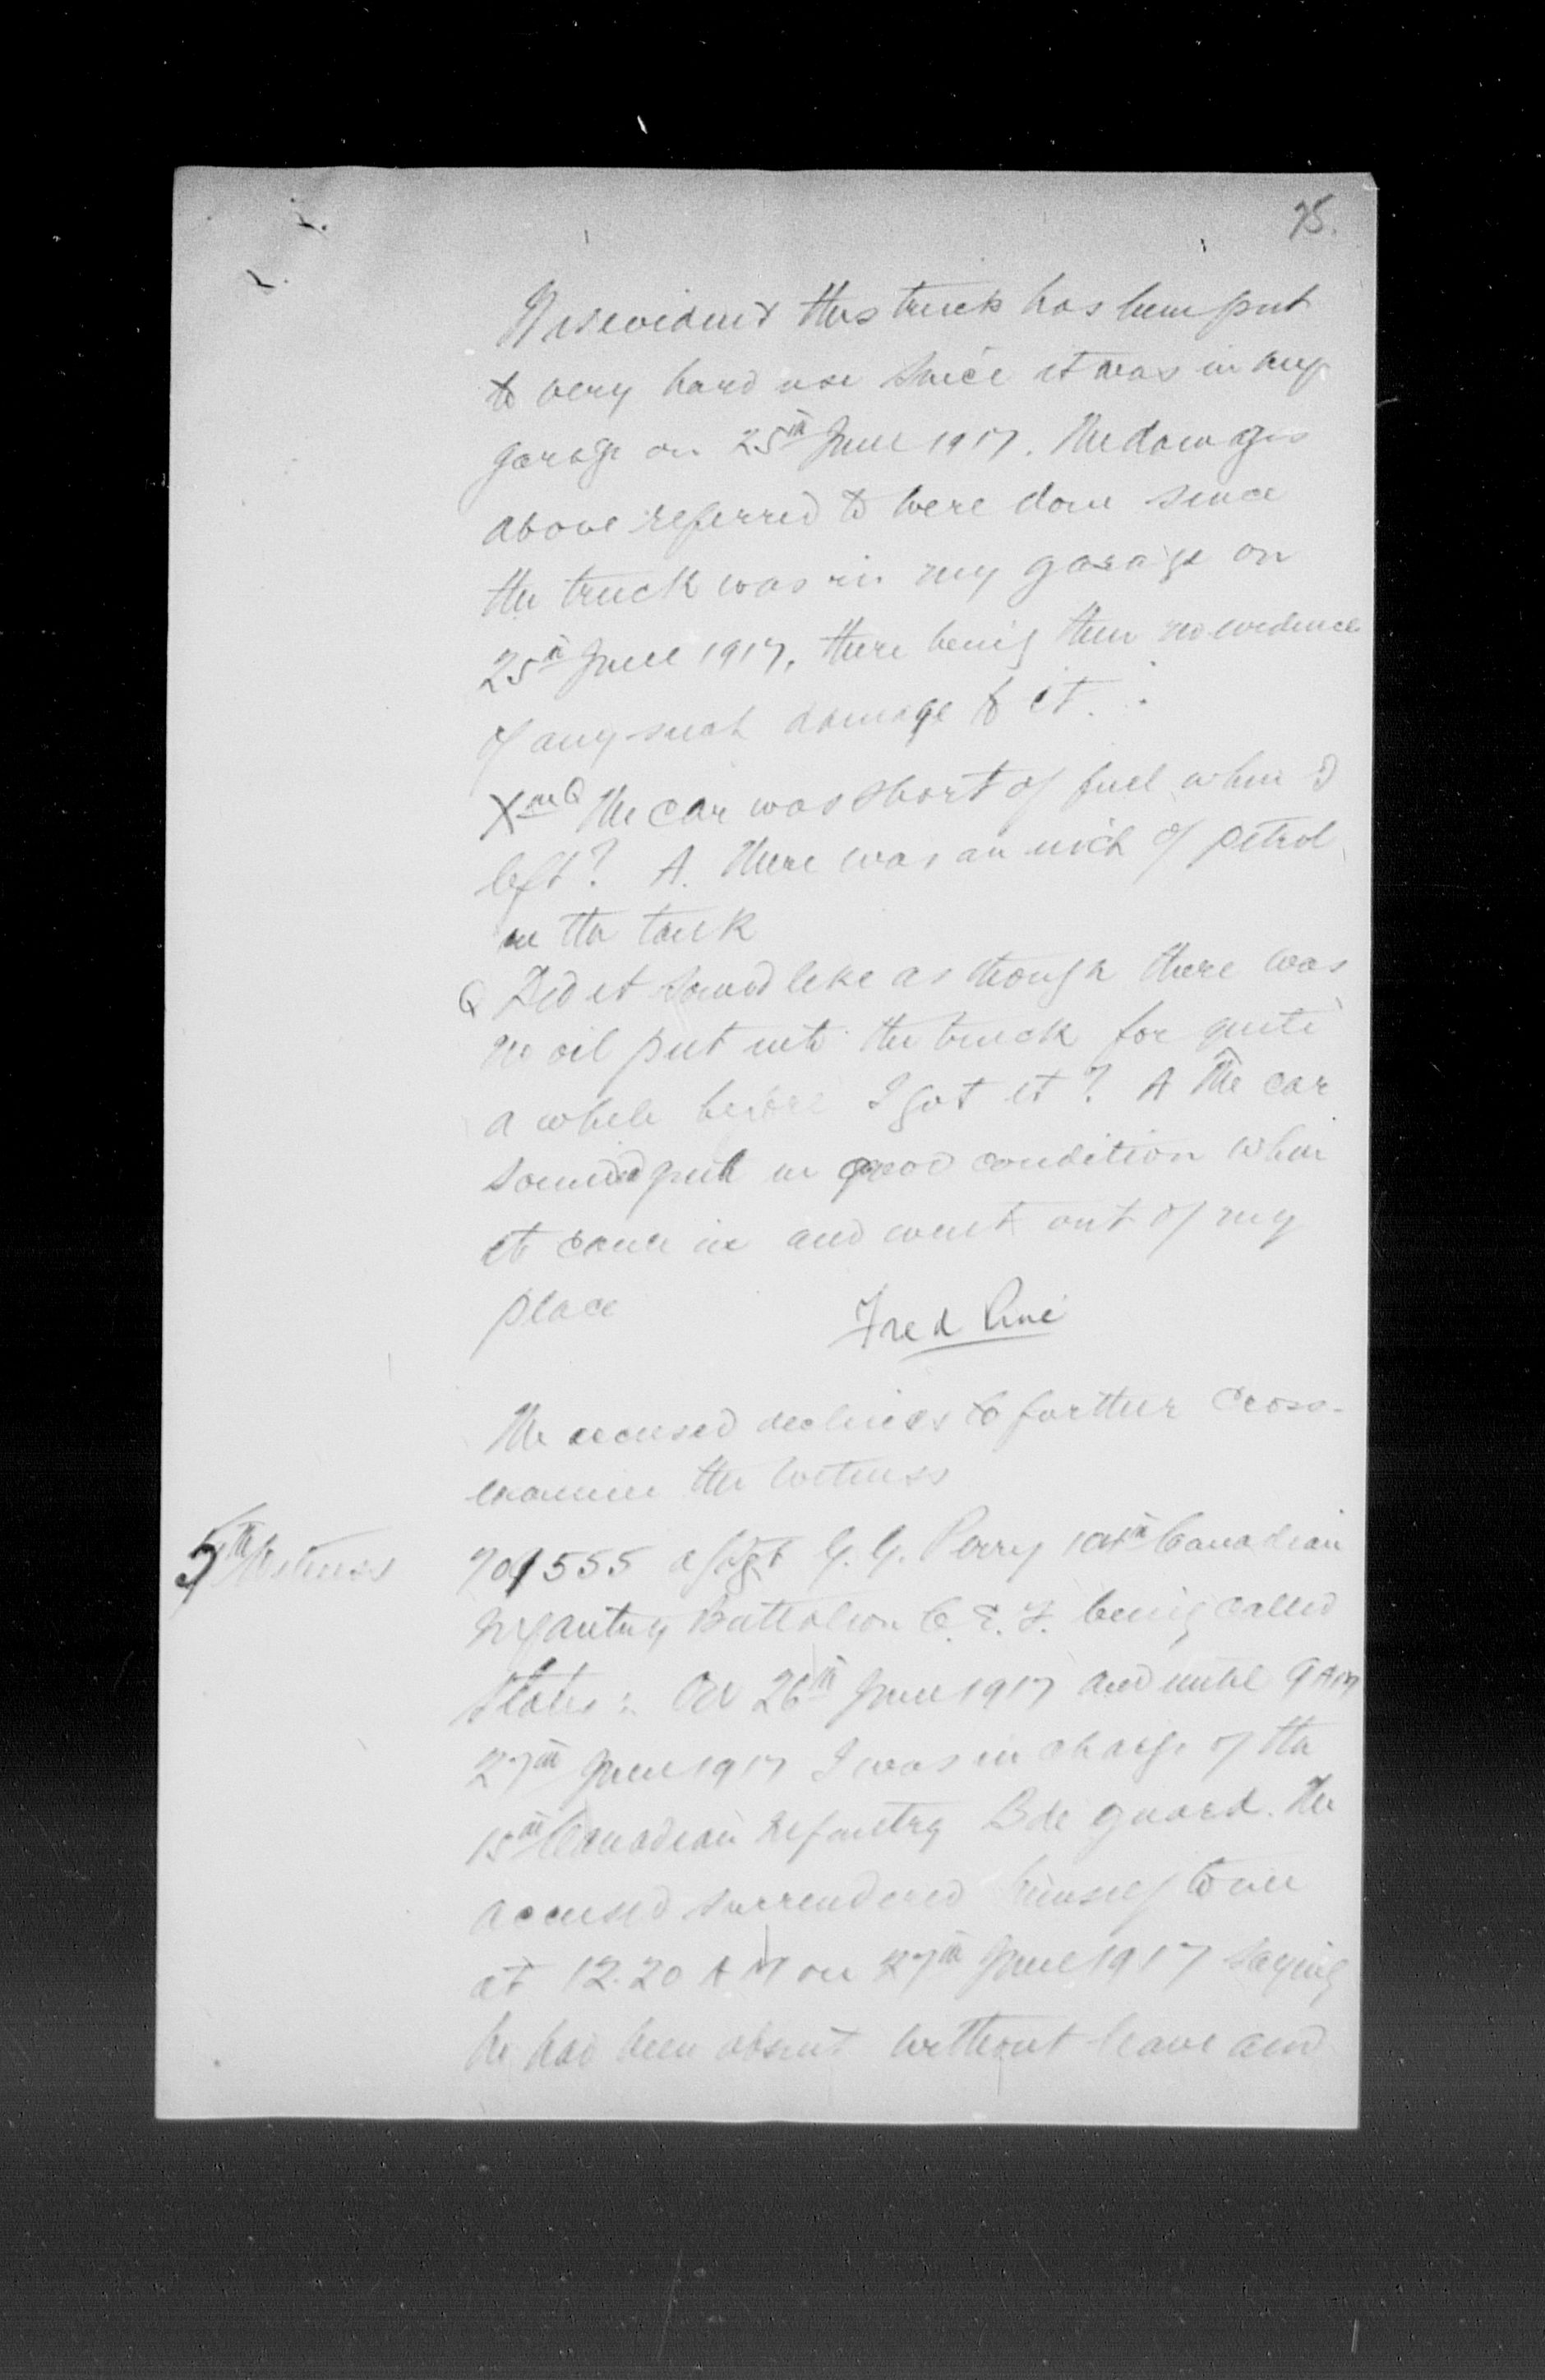 75.
It is evident this truck has been put
to very hard use since it was in my
garage on 25th June 1917. The damages
above referred to were done since
the truck was in my garage on
25th June 1917, there being then no evidence
of any such damage to it.
Xmd Q The car was short of fuel when I
left? A. There was an inch of petrol
in the tank
Q Did it sound like as though there was
no oil put into the truck for quite
a while before I got it? A The car
sounded quite in good condition when
it came in and went out of my
place
Fred
The accused declines to further cross-
examine the witness
5th Witness
701555 a/Sgt G. G. Perry 107th Canadian
Infantry Battalion C. E. F. being called
states: On 26th June 1917 and until 9 AM
27th June 1917 I was in charge of the
15th Canadian Infantry Bde guard. The
accused surrendered himself to me
at 12.20 AM on 27th June 1917 saying
he had been absent without leave and